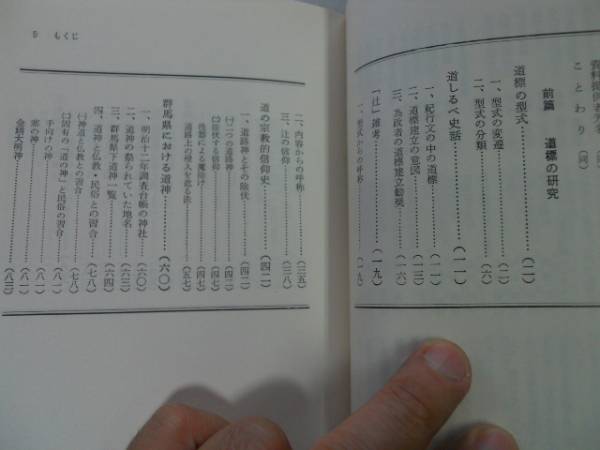 ことわり
前篇　道標の研究
道標の型式……………(二)
一、型式の変遷……………(二)
二、型式の分類……………(六)
道しるべ史話……………(一一)
一、紀行文の中の道標……………(一一)
二、道標建立の意図……………(一三)
三、為政者の道標建立勧奨……………(一六)
「辻」雑考……………(一九)
一、型式からの呼称……………(一九)
もくじ
二、内容からの呼称……………(三五)
三、辻の信仰……………(三八)
道の宗教的信仰史……………(四二)
一、道路神とその除伏……………(四二)
㈠二つの道路神……………(四二)
路上の侵入を遮る法……………(五七)
群馬県における道神……………(六〇)
一、明治十二年調査台帳の神社……………(六〇)
二、道神の祭られていた地名……………(六三)
三、群馬県下道神一覧……………(六四)
四、道神と仏教・民俗との習合……………(七八)
㈠神道と仏教との習合……………(七八)
㈡固有の「道の神」と民俗の習合……………(八一)
手向けの神……………(八一)
塞の神……………(八一)
金精大明神……………(八三)